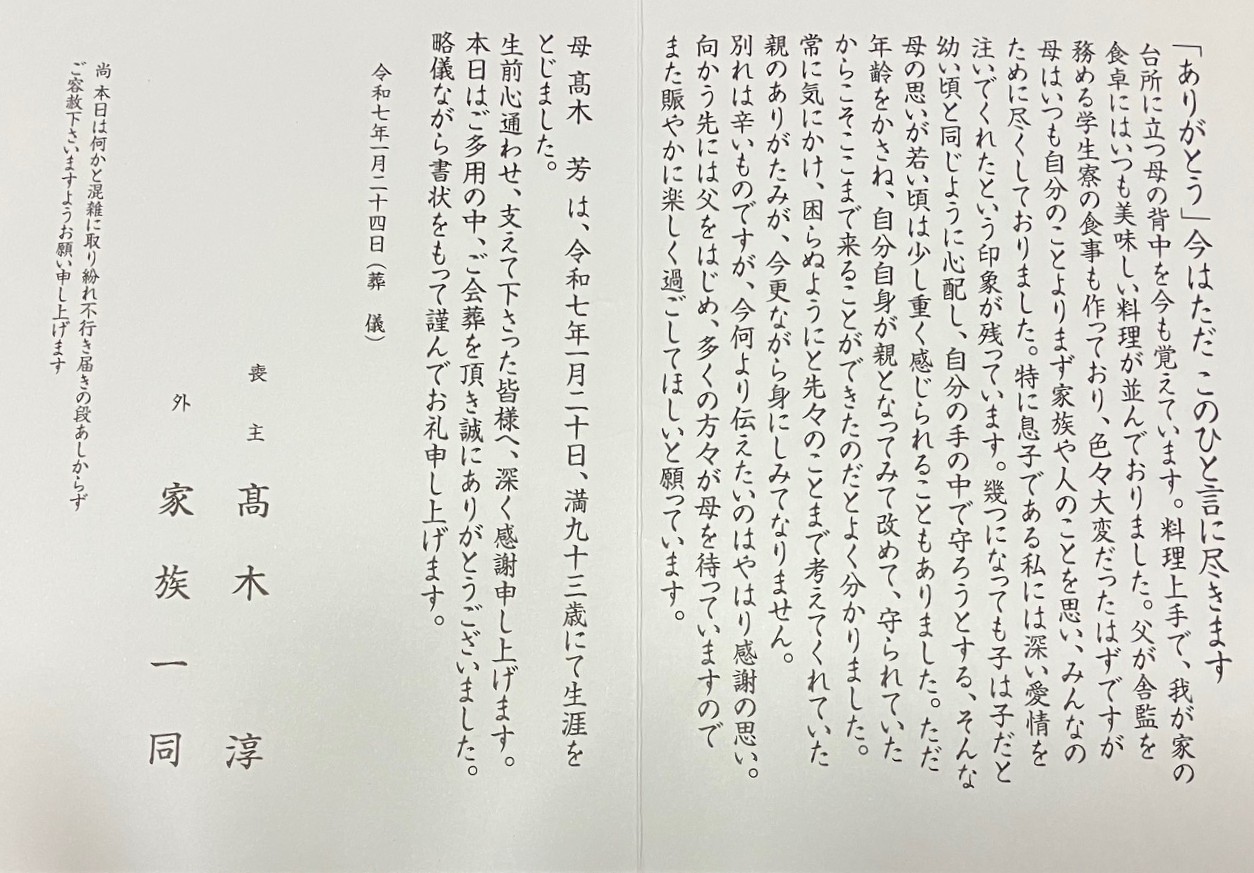 「ありがとう」今はただ このひと言に尽きます
台所に立つ母の背中を今も覚えています。料理上手で、我が家の
食卓にはいつも美味しい料理が並んでおりました。父が舎監を
務める学生寮の食事も作っており、色々大変だったはずですが
母はいつも自分のことよりまず家族や人のことを思い、みんなの
ために尽くしておりました。特に息子である私には深い愛情を
注いでくれたという印象が残っています。幾つになっても子は子だと
幼い頃と同じように心配し、自分の手の中で守ろうとする、そんな
母の思いが若い頃は少し重く感じられることもありました。ただ
年齢をかさね、自分自身が親となってみて改めて、守られていた
からこそここまで来ることができたのだとよく分かりました。
常に気にかけ、困らぬようにと先々のことまで考えてくれていた
親のありがたみが、今更ながら身にしみてなりません。
別れは辛いものですが、今何より伝えたいのはやはり感謝の思い。
向かう先には父をはじめ、多くの方々が母を待っていますので
また賑やかに楽しく過ごしてほしいと願っています。
母 髙木 芳 は、令和七年一月二十日、満九十三歳にて生涯を
とじました。
生前心通わせ、支えて下さった皆様へ、深く感謝申し上げます。
本日はご多用の中、ご会葬を頂き誠にありがとうございました。
略儀ながら書状をもって謹んでお礼申し上げます。
令和七年一月二十四日（葬 儀）
喪主 髙木 淳
外 家族一同
尚 本日は何かと混雑に取り紛れ不行き届きの段あしからず
ご容赦下さいますようお願い申し上げます